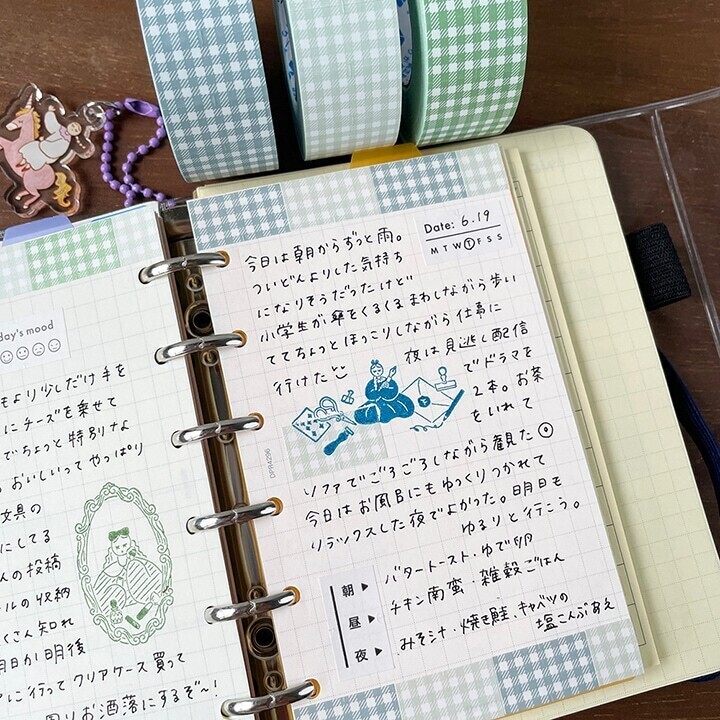 day's mood
もより少しだけ手を
にチーズを乗せて
でちょっと特別な
。おいしいって やっぱり
文具の
にしてる
人の投稿
ールの収納
くさん知れ
明日か明後
アに行ってクリアケース買って
周りお洒落にするぞ〜!
Date: 6.19
M T W T F S S
今日は朝からずっと雨。
ついどんよりした気持ち
になりそうだったけど
小学生が傘をくるくるまわしながら歩い
ててちょっとほっこりしながら仕事に
行けた
夜は見逃し配信
でドラマを
2本。お茶
をいれて
ソファでごろごろしながら観た
今日はお風呂にもゆっくりつかれて
リラックスした夜でよかった。明日も
ゆるりと行こう。
DPR4296
朝▶ バタートースト・ゆで卵
昼▶ チキン南蛮・雑穀ごはん
夜▶ みそ汁・焼き鮭、キャベツの
塩こんぶあえ